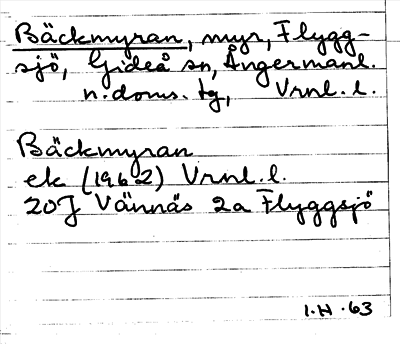 Bäckmyran, myr, Flygg-
sjö, Gideå sn, Ångermanl.
n. doms. tg, Vrnl. l.
Bäckmyran
ek (1962) Vrnl. l.
20J Vännäs 2a Flyggsjö
I.H. 63